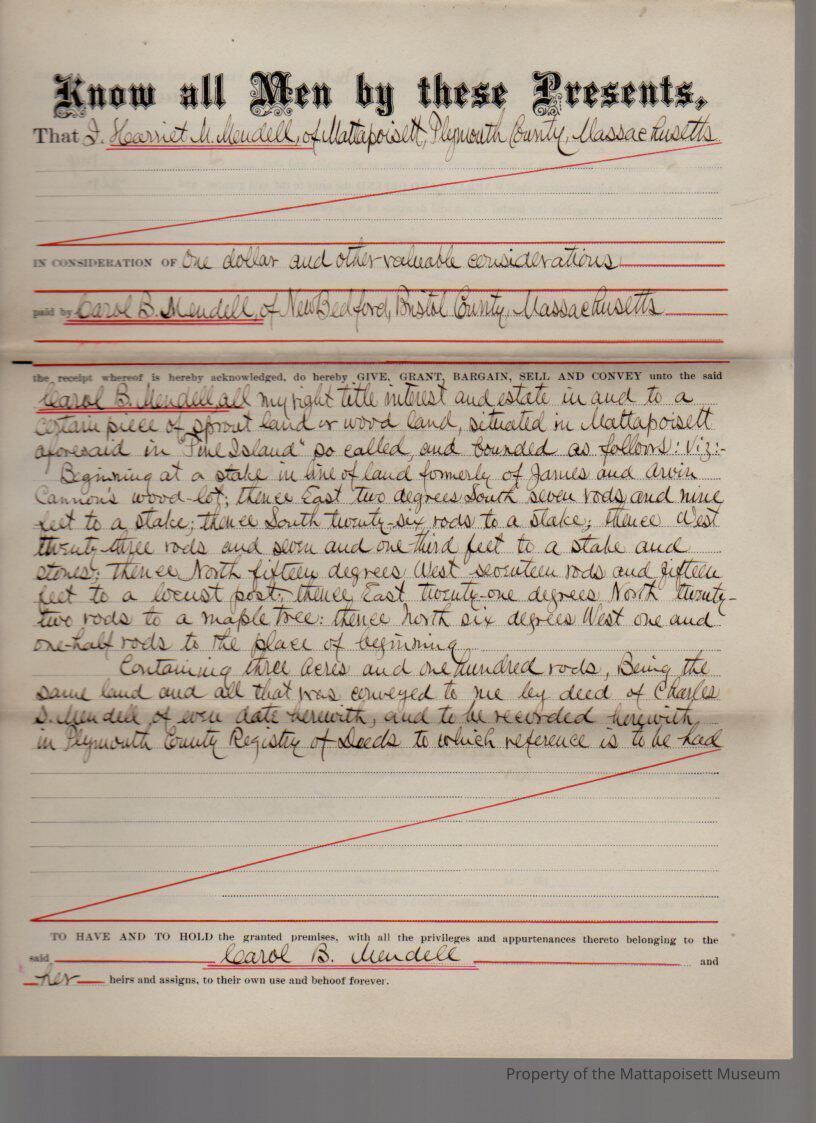 Know all Men by these Presents,
That I, Harriet M. Mendell, of Mattapoisett, Plymouth County, Massachusetts
IN CONSIDERATION OF One dollar and other valuable considerations
paid by Carol B. Mendell, of New Bedford, Bristol County, Massachusetts
the receipt whereof is hereby acknowledged, do hereby GIVE, GRANT, BARGAIN, SELL AND CONVEY unto the said
Carol B. Mendell, all my right title interest and estate in and to a
certain piece of sprout land or wood land, situated in Mattapoisett
aforesaid in "Pine Island" so called, and bounded as follows: Viz:-
Beginning at a stake in line of land formerly of James and Arvin
Cannon's wood-lot; thence East two degrees South seven rods and nine
feet to a stake; thence South twenty-six rods to a stake; thence West
twenty-three rods and seven and one-third feet to a stake and
stones; thence North fifteen degrees West seventeen rods and fifteen
feet to a locust post; thence East twenty-one degrees North twenty-
two rods to a maple tree: thence North six degrees West one and
one-half rods to the place of beginning
Containing three acres and one hundred rods, Being the
same land and all that was conveyed to me by deed of Charles
S. Mendell of even date herewith, and to be recorded herewith
in Plymouth County Registry of Deeds to which reference is to be had
TO HAVE AND TO HOLD the granted premises, with all the privileges and appurtenances thereto belonging to the
said Carol B. Mendell and
her heirs and assigns, to their own use and behoof forever.
Property of the Mattapoisett Museum